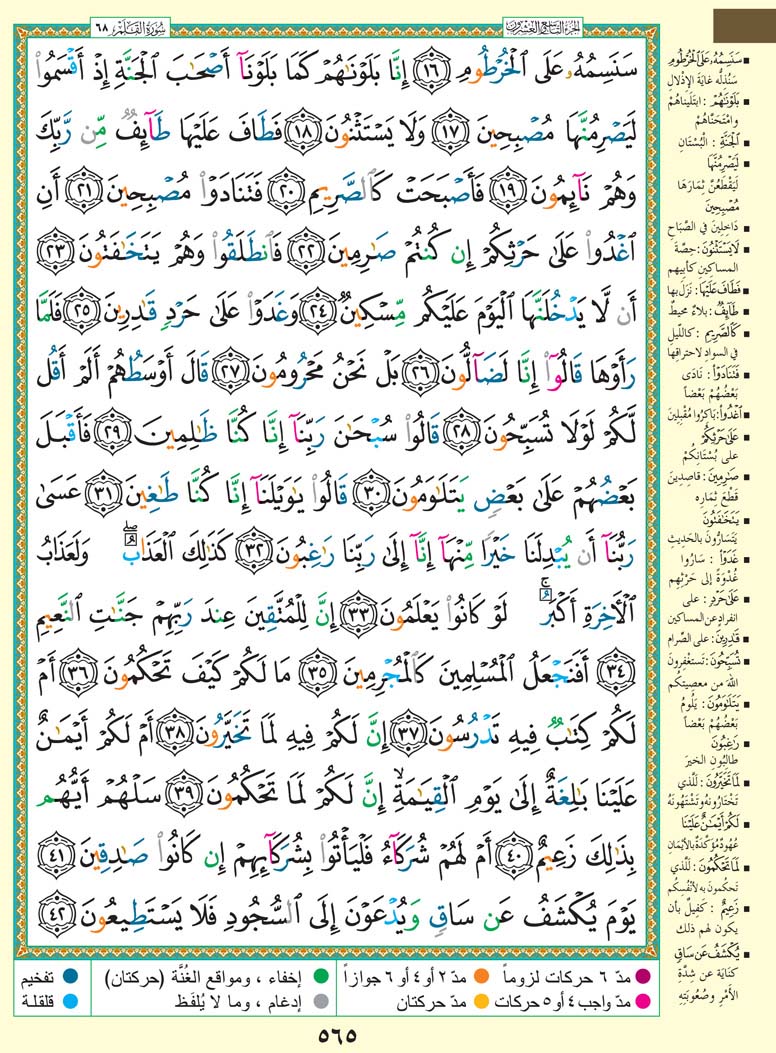 الجزء التاسع والعشرون
سُورَةُ القَلَمِ ٦٨
سَنَسِمُهُۥ عَلَى ٱلْخُرْطُومِ ١٦ إِنَّا بَلَوْنَٰهُمْ كَمَا بَلَوْنَآ أَصْحَٰبَ ٱلْجَنَّةِ إِذْ أَقْسَمُوا۟
لَيَصْرِمُنَّهَا مُصْبِحِينَ ١٧ وَلَا يَسْتَثْنُونَ ١٨ فَطَافَ عَلَيْهَا طَآئِفٌ مِّن رَّبِّكَ
وَهُمْ نَآئِمُونَ ١٩ فَأَصْبَحَتْ كَٱلصَّرِيمِ ٢٠ فَتَنَادَوْا۟ مُصْبِحِينَ ٢١ أَنِ
ٱغْدُوا۟ عَلَىٰ حَرْثِكُمْ إِن كُنتُمْ صَٰرِمِينَ ٢٢ فَٱنطَلَقُوا۟ وَهُمْ يَتَخَٰفَتُونَ ٢٣
أَن لَّا يَدْخُلَنَّهَا ٱلْيَوْمَ عَلَيْكُم مِّسْكِينٌ ٢٤ وَغَدَوْا۟ عَلَىٰ حَرْدٍ قَٰدِرِينَ ٢٥ فَلَمَّا
رَأَوْهَا قَالُوٓا۟ إِنَّا لَضَآلُّونَ ٢٦ بَلْ نَحْنُ مَحْرُومُونَ ٢٧ قَالَ أَوْسَطُهُمْ أَلَمْ أَقُل
لَّكُمْ لَوْلَا تُسَبِّحُونَ ٢٨ قَالُوا۟ سُبْحَٰنَ رَبِّنَآ إِنَّا كُنَّا ظَٰلِمِينَ ٢٩ فَأَقْبَلَ
بَعْضُهُمْ عَلَىٰ بَعْضٍ يَتَلَٰوَمُونَ ٣٠ قَالُوا۟ يَٰوَيْلَنَآ إِنَّا كُنَّا طَٰغِينَ ٣١ عَسَىٰ
رَبُّنَآ أَن يُبْدِلَنَا خَيْرًا مِّنْهَآ إِنَّآ إِلَىٰ رَبِّنَا رَٰغِبُونَ ٣٢ كَذَٰلِكَ ٱلْعَذَابُ ۖ وَلَعَذَابُ
ٱلْءَاخِرَةِ أَكْبَرُ ۚ لَوْ كَانُوا۟ يَعْلَمُونَ ٣٣ إِنَّ لِلْمُتَّقِينَ عِندَ رَبِّهِمْ جَنَّٰتِ ٱلنَّعِيمِ
٣٤ أَفَنَجْعَلُ ٱلْمُسْلِمِينَ كَٱلْمُجْرِمِينَ ٣٥ مَا لَكُمْ كَيْفَ تَحْكُمُونَ ٣٦ أَمْ
لَكُمْ كِتَٰبٌ فِيهِ تَدْرُسُونَ ٣٧ إِنَّ لَكُمْ فِيهِ لَمَا تَخَيَّرُونَ ٣٨ أَمْ لَكُمْ أَيْمَٰنٌ
عَلَيْنَا بَٰلِغَةٌ إِلَىٰ يَوْمِ ٱلْقِيَٰمَةِ ۙ إِنَّ لَكُمْ لَمَا تَحْكُمُونَ ٣٩ سَلْهُمْ أَيُّهُم
بِذَٰلِكَ زَعِيمٌ ٤٠ أَمْ لَهُمْ شُرَكَآءُ فَلْيَأْتُوا۟ بِشُرَكَآئِهِمْ إِن كَانُوا۟ صَٰدِقِينَ ٤١
يَوْمَ يُكْشَفُ عَن سَاقٍ وَيُدْعَوْنَ إِلَى ٱلسُّجُودِ فَلَا يَسْتَطِيعُونَ ٤٢
سَنَسِمُهُ عَلَى الْخُرْطُومِ
سَنُذِلُّه غايَةَ الإذْلالِ
بَلَوْنَاهُمْ : ابتلَيناهُمْ
وَامْتَحنَّاهُمْ
الجَنَّةِ : البُسْتَانِ
لَيَصْرِمُنَّهَا
لَيَقْطَعُنَّ ثِمَارَهَا
مُصْبِحِينَ
دَاخِلِينَ في الصَّبَاحِ
لَا يَسْتَثْنُونَ : حِصَّةَ
المساكين كأبيهم
فَطَافَ عَلَيْهَا : نَزَلَ بها
طَائِفٌ : بَلَاءٌ محيطٌ
كَالصَّرِيمِ : كاللَّيلِ
في السواد لاحتراقِها
فَتَنَادَوْا : نَادَى
بَعْضُهُمْ بَعْضاً
اغْدُوا : باكِرُوا مُقْبِلينَ
عَلَى حَرْثِكُمْ
على بُسْتَانِكُمْ
صَارِمِينَ : قاصِدِينَ
قَطْعَ ثِمَارِه
يَتَخَافَتُونَ
يَتَسَارُّونَ بالحَديثِ
غَدَوْا : سَارُوا
غُدْوَةً إلى حَرْثِهِم
عَلَى حَرْدٍ : على
انفرادٍ عن المساكين
قَادِرِينَ : على الصِّرام
تُسَبِّحُونَ : تستغفرونَ
اللهَ من معصيتكُمْ
يَتَلَاوَمُونَ : يَلُومُ
بَعْضُهُمْ بَعْضاً
رَاغِبُونَ
طالِبُونَ الخيرَ
لَمَا تَخَيَّرُونَ : لَلَّذي
تَخْتَارُونه وتَشْتَهُونَهُ
لَكُمْ أَيْمَانٌ عَلَيْنَا
عُهُودٌ مُؤكَّدَةٌ بالأَيْمَانِ
لَمَا تَحْكُمُونَ : لَلَّذي
تحكمونَ به لأَنْفُسِكُم
زَعِيمٌ : كَفيلٌ بأن
يكون لهم ذلك
يُكْشَفُ عَن سَاقٍ
كنَايَة عن شِدَّةِ
الأمْرِ وصُعُوبَتِهِ
مدّ ٦ حركات لزوماً
مدّ ٢ أو ٤ أو ٦ جوازاً
إخفاء ، ومواقع الغُنَّة (حركتان)
تفخيم
مدّ واجب ٤ أو ٥ حركات
مدّ حركتان
إدغام ، وما لا يُلفَظ
قلقلة
٥٦٥